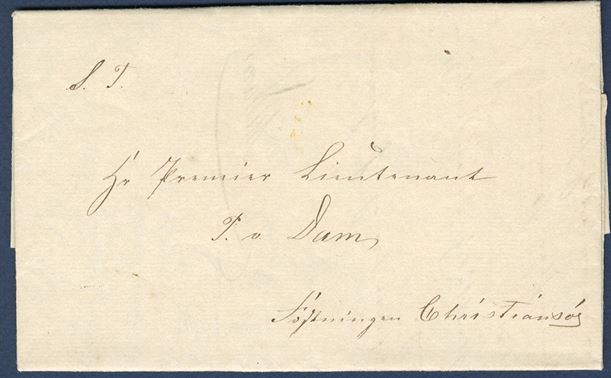 S. T.
Hr Premier Lieutenant
P. v. Dam,
Föstningen Christiansöe